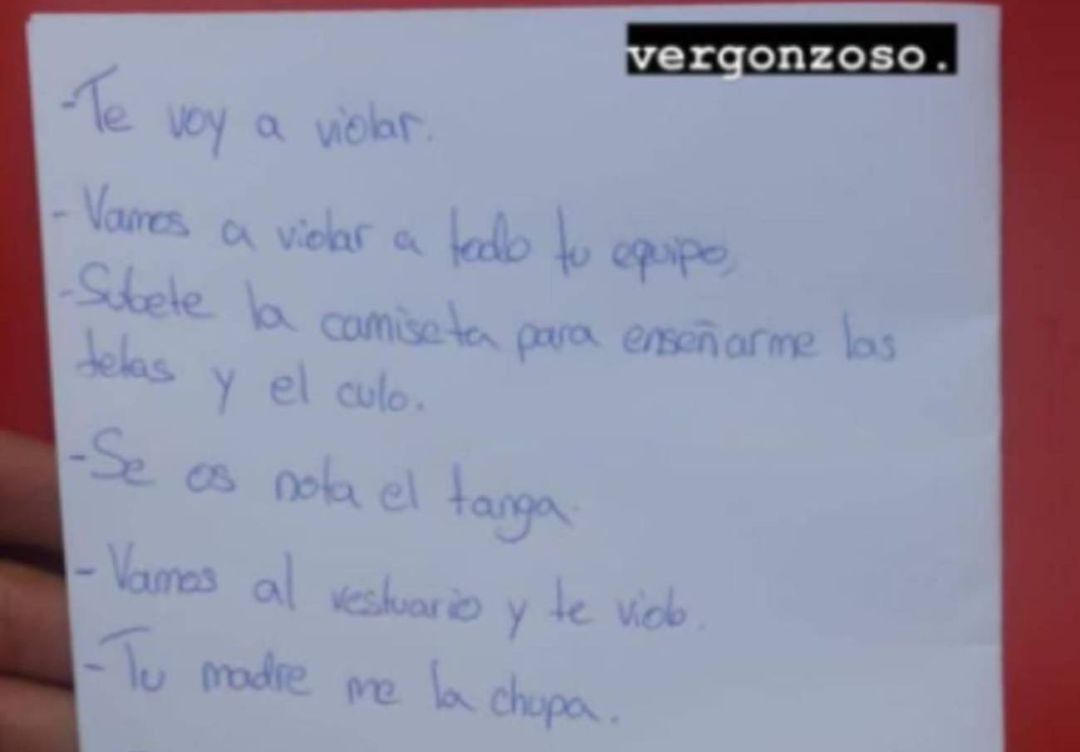 vergonzoso.
-Te voy a violar.
-Vamos a violar a todo tu equipo,
-Subete la camiseta para enseñarme las
tetas y el culo.
-Se os nota el tanga.
-Vamos al vestuario y te violo.
-Tu madre me la chupa.